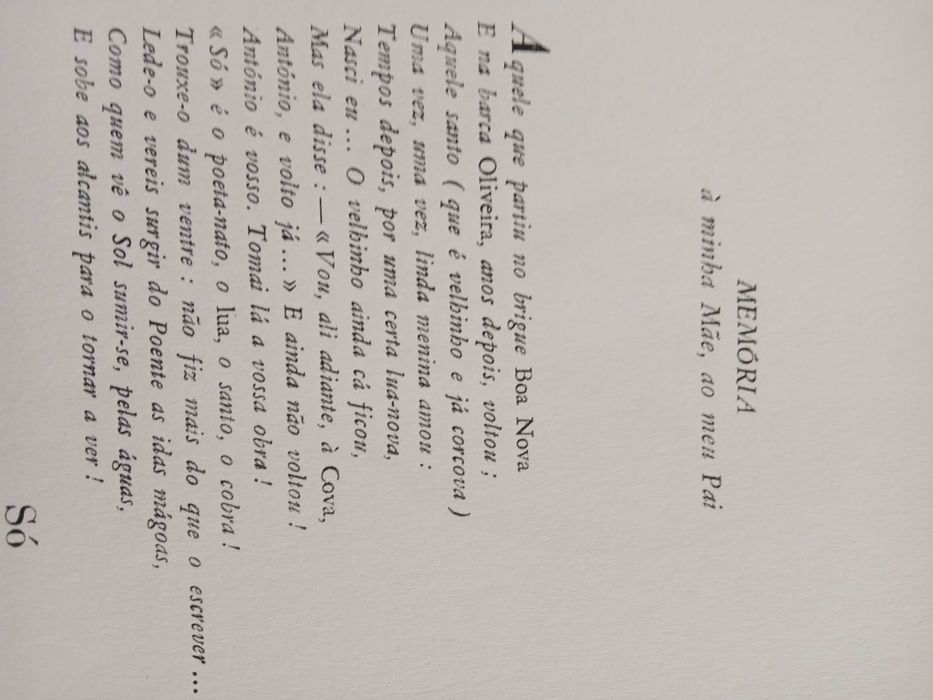 MEMÓRIA
à minha Mãe, ao meu Pai
Aquele que partiu no brigue Boa Nova
E na barca Oliveira, anos depois, voltou;
Aquele santo (que é velhinho e já corcova)
Uma vez, uma vez, linda menina amou:
Tempos depois, por uma certa lua-nova,
Nasci eu... O velhinho ainda cá ficou,
Mas ela disse: — «Vou, ali adiante, à Cova,
António, e volto já...» E ainda não voltou!
António é vosso. Tomai lá a vossa obra!
«Só» é o poeta-nato, o lua, o santo, o cobra!
Trouxe-o dum ventre: não fiz mais do que o escrever...
Lede-o e vereis surgir do Poente as idas mágoas,
Como quem vê o Sol sumir-se, pelas águas,
E sobe aos alcantis para o tornar a ver!
Só